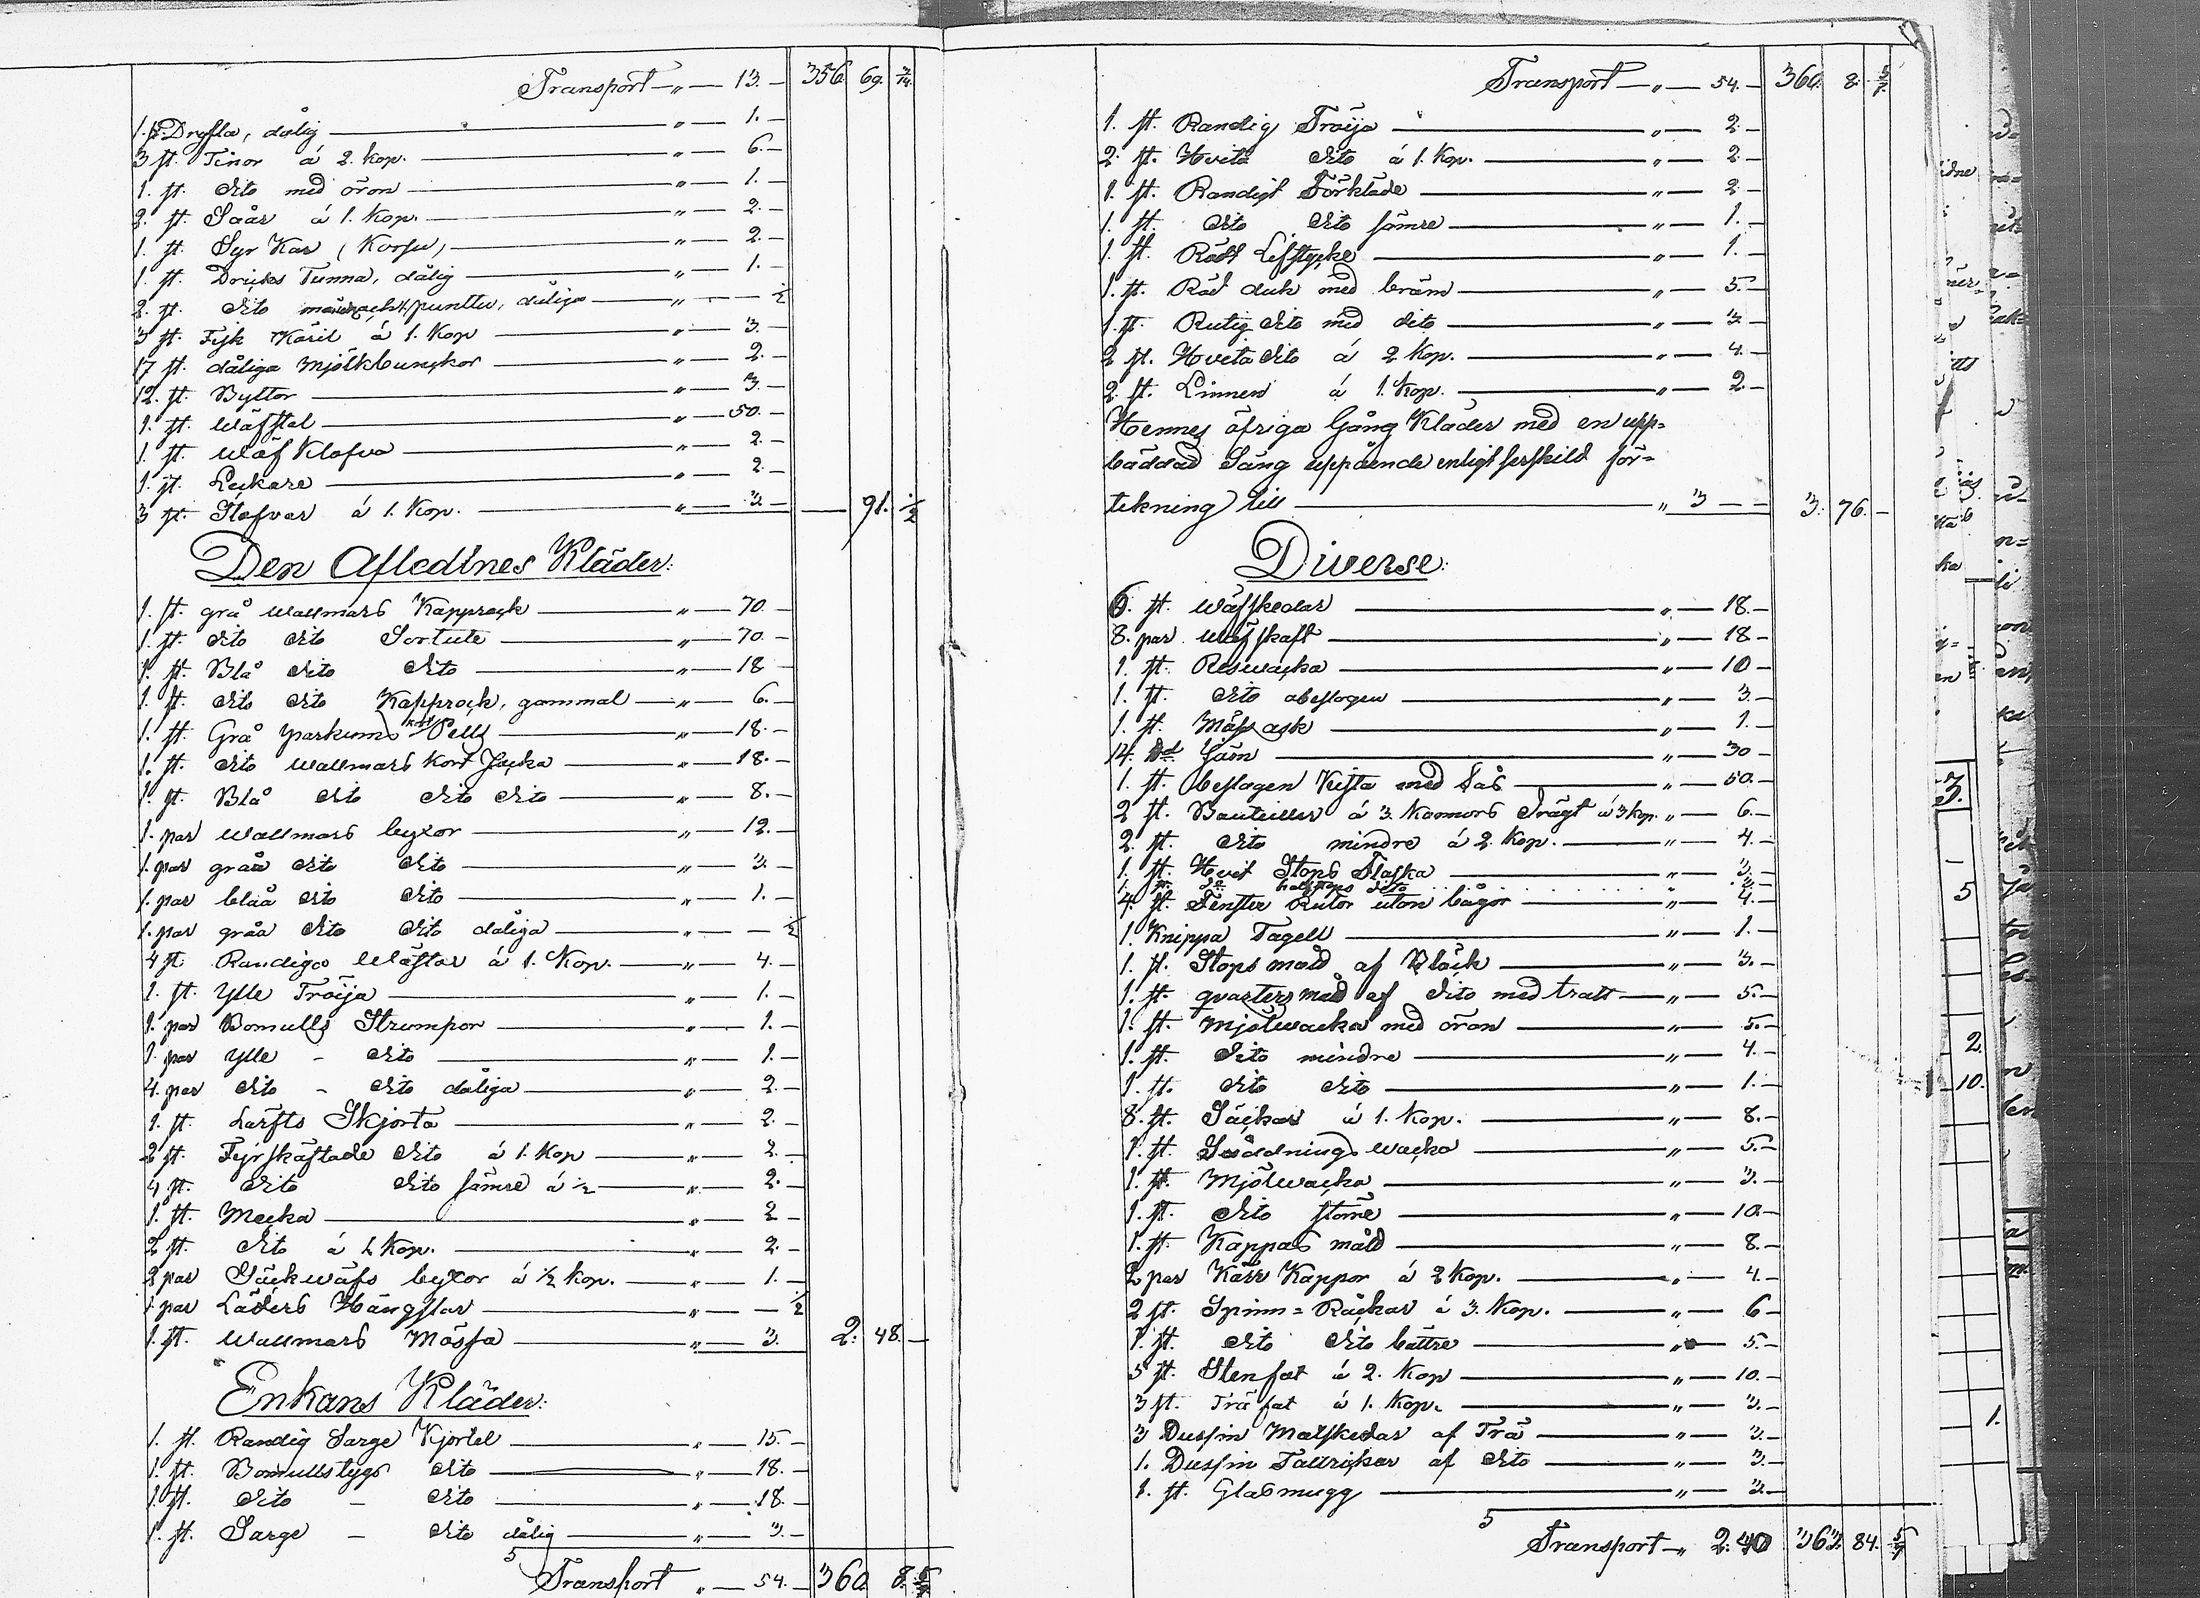 Transport — „ — 13. — 356. 69. 3/14.
1. st. Drysla, dålig — „ — 1. —
3 st. Tinor á 2. kop. — „ — 6. —
1. st. dito med öron — „ — 1. —
2. st. Såår á 1. Kop. — „ — 2. —
1. st. Syr Kar (Korsu) — „ — 2. —
1. st. Dricks Tunna, dålig — „ — 1. —
2. st. dito dåliga — „ — — ½
3 st. Fisk Käril á 1. Kop — „ — 3. —
17 st. dåliga Mjölkbunckor — „ — 2. —
12. st. Byttor — „ — 3. —
1. st. Wäfstol — „ — 50. —
1. st. Wäf Klofva — „ — 2. —
1. st. Luckare — „ — 2. —
3 st. Stäfvar á 1. Kop. — „ — 3 — — 91. ½
Den Aflednes Kläder:
1. st. grå Wallmars Kapprock — „ — 70. —
1. st. dito dito Sortute — „ — 70. —
1. st. Blå dito dito — „ — 18 —
1. st. dito dito Kapprock, gammal — „ — 6. —
1. st. Grå parkums kort Pells — „ — 18. —
1. st. dito Wallmars kort Jacka — „ — 18. —
1. st. Blå dito dito dito — „ — 8. —
1. par Wallmars byxor — „ — 12. —
1. par gråa dito dito — „ — 3. —
1. par blåa dito dito — „ — 1. —
1. par gråa dito dito dåliga — „ — — ½
4 st. Randiga Wästar á 1. Kop. — „ — 4. —
1. st. Ylle Tröija — „ — 1. —
1. par Bomulls Strumpor — „ — 1. —
1. par Ylle - dito — „ — 1. —
4. par dito - dito dåliga — „ — 2. —
1. st. Lärfts Skjorta — „ — 2. —
2 st. Fyrskäftade dito á 1. Kop — „ — 2. —
4 st. dito dito sämre á ½ — „ — 2. —
1. st. Mecka — „ — 2 —
2 st. dito á 1. Kop. — „ — 2. —
2 par Säckwäfs byxor á ½ kop. — „ — 1. —
1. par Läders Hängslar — „ — — ½
1. st. Wallmars Mössa — „ — 3. 2. 48. —
Enkans Kläder:
1. st. Randig Sarge Kjortel — „ — 15. —
1. st. Bomullstygs dito — „ — 18. —
1. st. dito - dito — „ — 18. —
1. st. Sarge - dito dålig — „ — 3. —
5
Transport „ — 54. — 360. 8. 5/7
Transport — „ — 54. — 360. 8. 5/7.
1. st. Randig Tröija — „ — 2. —
2. st. Hvita dito á 1. Kop. — „ — 2. —
1. st. Randigt Förkläde — „ — 2 —
1. st. dito dito sämre — „ — 1. —
1. st. Rödt Lifstycke — „ — 1. —
1. st. Röd duk med bräm — „ — 5. —
1. st. Rutig dito med dito — „ — 3 —
2 st. Hvita dito á 2 Kop. — „ — 4. —
2. st. Linnen á 1. Kop. — „ — 2. —
Hennes öfriga Gång Kläder med en upp=
bäddad Säng uppående enligt serskild för=
tekning till — „ 3 — — 3. 76. —
Diverse:
6. st. Wäfskedar — „ — 18. —
8. par Wäfskaft — „ — 18 —
1. st. Reswacka — „ — 10 —
1. st. dito obeslagen — „ — 3. —
1. st. Mäss ask — „ — 1. —
14. Järn — „ — 30 —
1. st. beslagen Kista med Lås — „ — 50. —
2 st. Bouteiller á 3. Kannors drägt á 3 kop. „ — 6. —
2. st. dito mindre á 2. Kop. — „ — 4. —
1. st. Hvit Stops Flaska — „ — 3. —
1. st. do halfstops dito — „ — 2. —
4. st. Fenster Rutor utan bågor — „ — 4. —
1. Knippa Tagell — „ — 1. —
1. st. Stops mått af Bläck — „ — 3. —
1. st. qvarters mått af dito med tratt — „ — 5. —
1. st. Mjölwacka med öron — „ — 5. —
1. st. dito mindre — „ — 4. —
1. st. dito dito — „ — 1. —
8. st. Säckar á 1. Kop. — „ — 8. —
1. st. Sådnings wacka — „ — 5. —
1. st. Mjölwacka — „ — 3. —
1. st. dito större — „ — 10. —
1. st. Kappas måtd — „ — 8. —
2 par Kärr Kappor á 2 Kop. — „ — 4. —
2 st. Spinn=Råckar á 3. Kop. — „ — 6 —
1. st. dito dito bättre — „ — 5. —
5 st. Stenfat á 2. Kop — „ — 10. —
3 st. Trä fat á 1. Kop. — „ — 3. —
3 Dussin Matskedar af Trä — „ — 3. —
1. Dussin Tallrickar af dito — „ — 3. —
1. st. Glasmugg — „ — 3. —
5
Transport — „ 2. 40 363. 84. 5/7